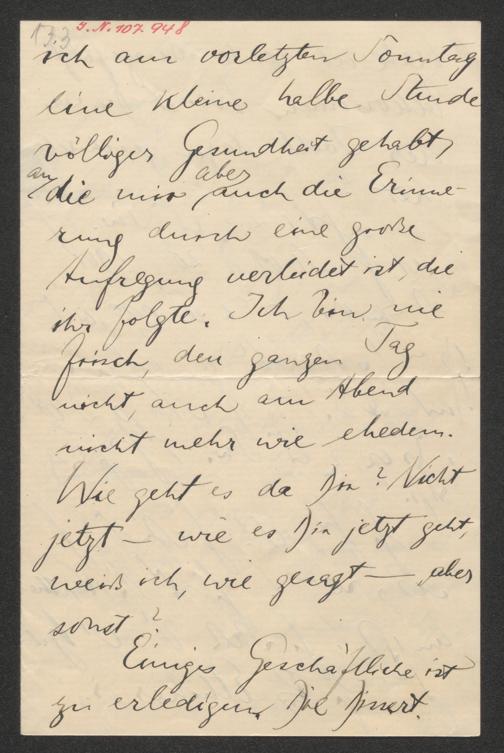 133
I.N. 107.948
ich am vorletzten Sonntag
eine kleine halbe Stunde
völliger Gesundheit gehabt,
an die mir aber auch die Erinne-
rung durch eine große
Aufregung verleidet ist, die
ihr folgte. Ich bin nie
frisch, den ganzen Tag
nicht, auch am Abend
nicht mehr wie ehedem.
Wie geht es da Dir? Nicht
jetzt – wie es Dir jetzt geht,
weiß ich, wie gesagt – aber
sonst?
Einiges Geschäftliche ist
zu erledigen. Die Dissert.